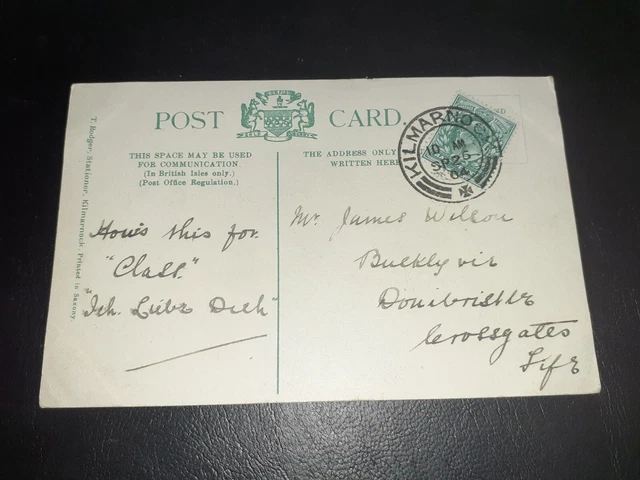 POST CARD.
THIS SPACE MAY BE USED
FOR COMMUNICATION.
(In British Isles only.)
(Post Office Regulation.)
THE ADDRESS ONLY
WRITTEN HERE
KILMARNOCK
SP 26
04
T. Rodger, Stationer, Kilmarnock. Printed in Saxony.
How's this for
"Class."
"Ich. Liebe Dich"
Mr. James Wilson
Buckly vie
Donibristle
Crossgates
Fife